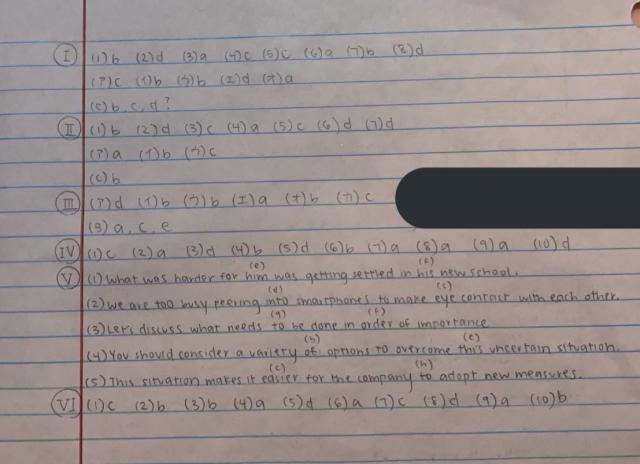 I (1) b (2) d (3) a (4) c (5) c (6) a (7) b (8) d
(ア) c (イ) b (ウ) b (エ) d (オ) a
(C) b, c, d ?
II (1) b (2) d (3) c (4) a (5) c (6) d (7) d
(ア) a (イ) b (ウ) c
(C) b
III (ア) d (イ) b (ウ) b (エ) a (オ) b (カ) c
(B) a, c, e
IV (1) c (2) a (3) d (4) b (5) d (6) b (7) a (8) a (9) a (10) d
V (1) What was harder for him was getting settled in his new school.
(e) (f)
(2) We are too busy peering into smartphones to make eye contact with each other.
(d) (c)
(3) Let's discuss what needs to be done in order of importance
(g) (f)
(4) You should consider a variety of options to overcome this uncertain situation.
(b) (e)
(5) This situation makes it easier for the company to adopt new measures.
(c) (h)
VI (1) c (2) b (3) b (4) a (5) d (6) a (7) c (8) d (9) a (10) b